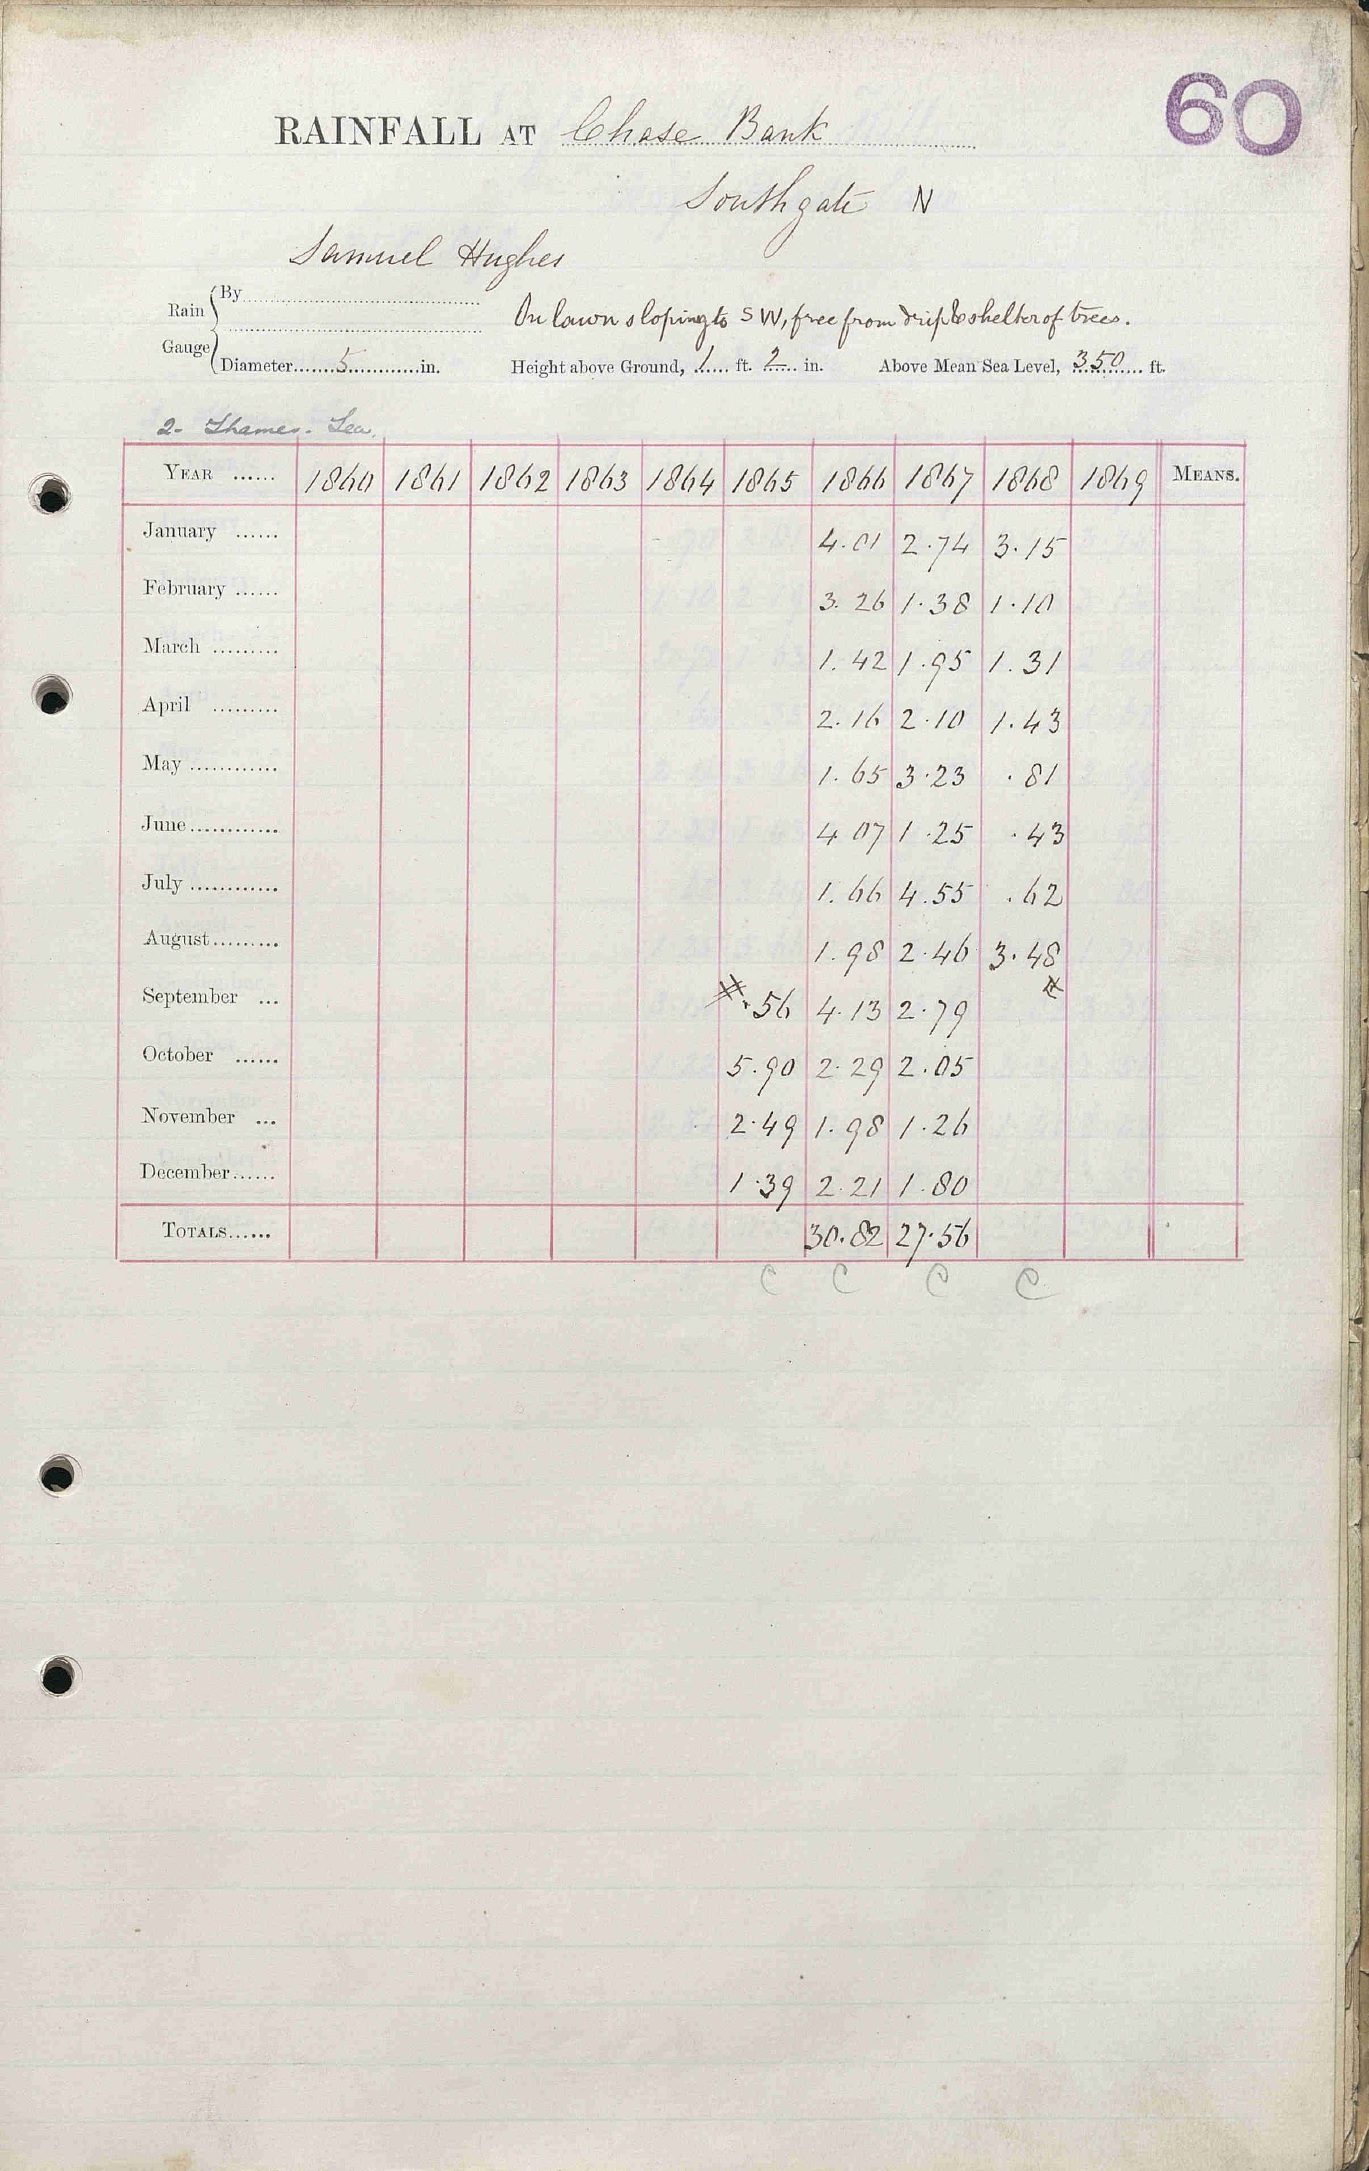 60
RAINFALL AT Chase Bank
Southgate N
Samuel Hughes
Rain Gauge
By
On lawn sloping to SW, free from drip & shelter of trees.
Diameter 5 in. Height above Ground, 1 ft. 2 in. Above Mean Sea Level, 350 ft.
2- Thames- Lea.
YEAR 1860 1861 1862 1863 1864 1865 1866 1867 1868 1869 MEANS.
January 4.01 2.74 3.15
February 3.26 1.38 1.10
March 1.42 1.95 1.31
April 2.16 2.10 1.43
May 1.65 3.23 .81
June 4.07 1.25 .43
July 1.66 4.55 .62
August 1.98 2.46 3.48
September .56 4.13 2.79
October 5.90 2.29 2.05
November 2.49 1.98 1.26
December 1.39 2.21 1.80
TOTALS 30.82 27.56
C C C C